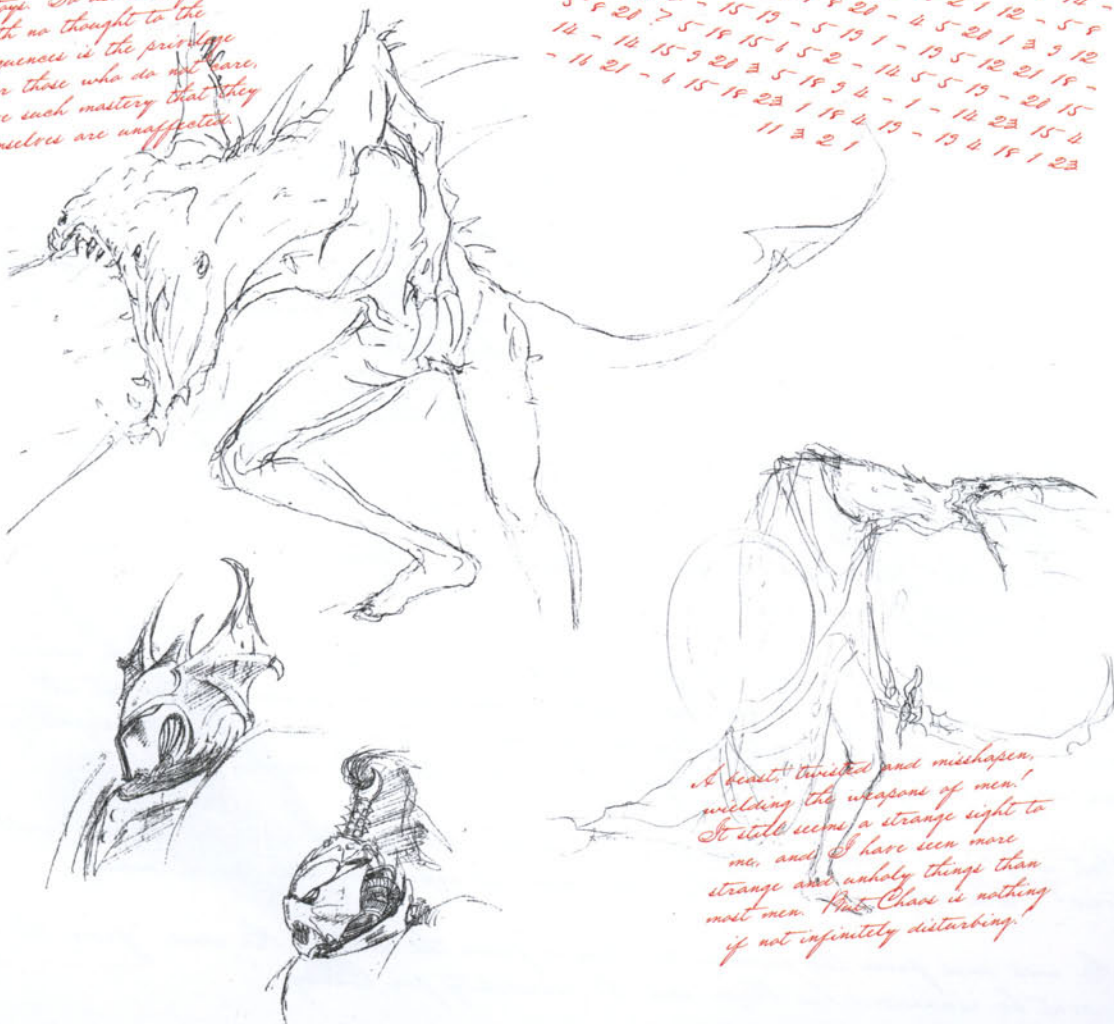 th no thought to the
quences is the privilege
r those who do not care,
ve such mastery that they
mselves are unaffected.
2 1 12 - 5 8
18 20 - 4 5 20 1 3 9 12
- 15 19 - 5 19 1 - 19 5 12 21 18 -
5 8 20 ? 5 18 15 6 5 2 - 14 5 5 19 - 20 15
14 - 14 15 9 20 3 5 18 9 4 - 1 - 14 23 15 4
- 16 21 - 6 15 18 23 1 18 4 19 - 19 4 18 1 23
11 3 2 1
A beast, twisted and misshapen,
wielding the weapons of men!
It still seems a strange sight to
me, and I have seen more
strange and unholy things than
most men. But Chaos is nothing
if not infinitely disturbing.